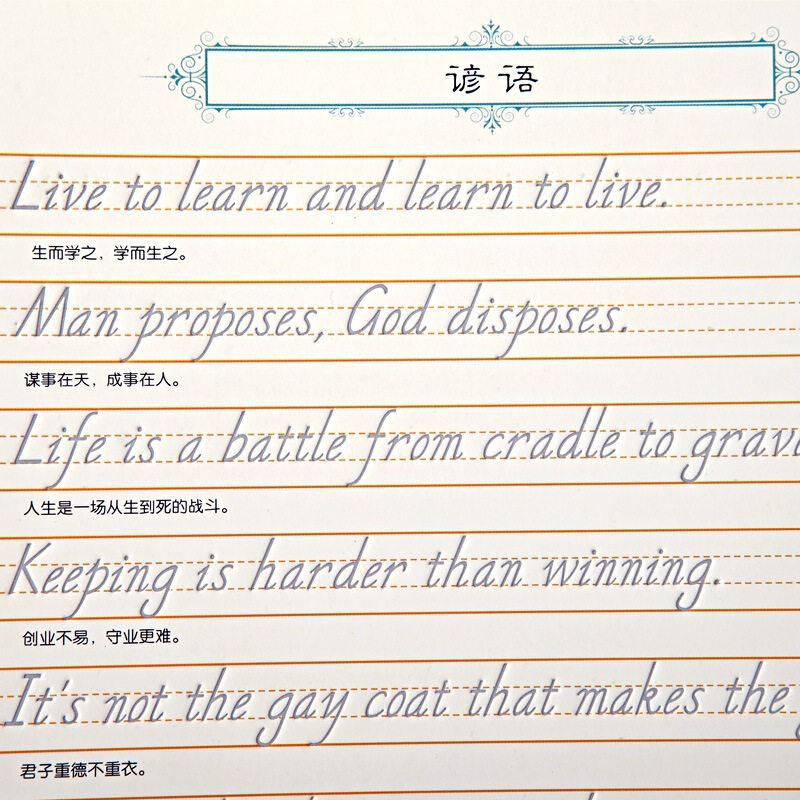 谚语
Live to learn and learn to live.
生而学之，学而生之。
Man proposes, God disposes.
谋事在天，成事在人。
Life is a battle from cradle to grav
人生是一场从生到死的战斗。
Keeping is harder than winning.
创业不易，守业更难。
It's not the gay coat that makes the
君子重德不重衣。